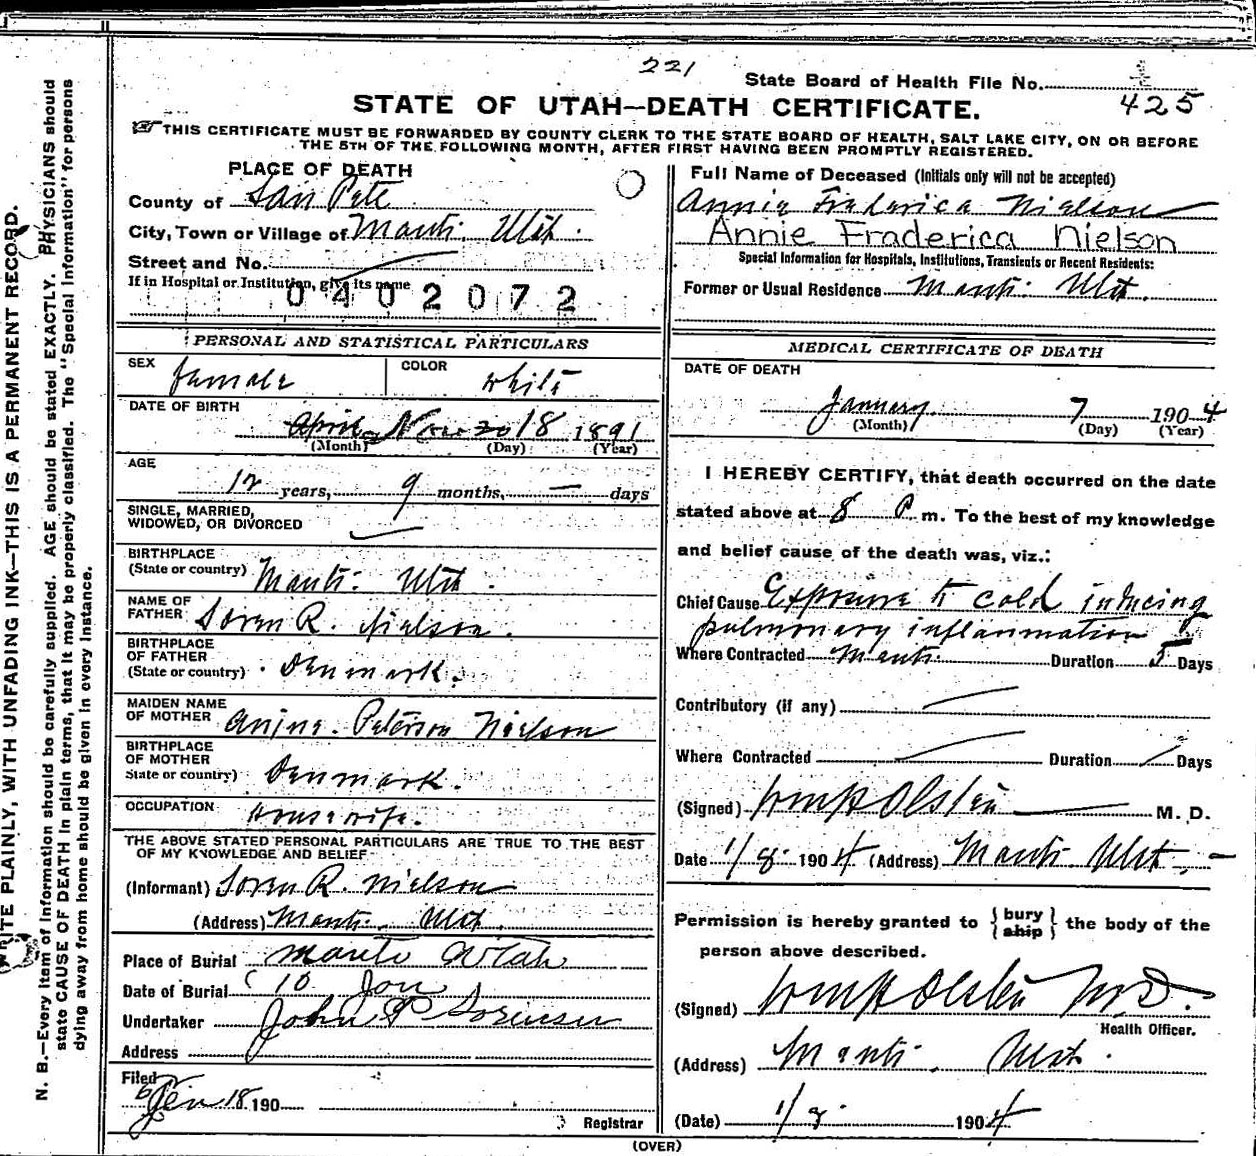 221
State Board of Health File No.
425
STATE OF UTAH—DEATH CERTIFICATE.
THIS CERTIFICATE MUST BE FORWARDED BY COUNTY CLERK TO THE STATE BOARD OF HEALTH, SALT LAKE CITY, ON OR BEFORE
THE 5TH OF THE FOLLOWING MONTH, AFTER FIRST HAVING BEEN PROMPTLY REGISTERED.
WRITE PLAINLY, WITH UNFADING INK—THIS IS A PERMANENT RECORD.
N. B.—Every item of information should be carefully supplied. AGE should be stated EXACTLY. PHYSICIANS should
state CAUSE OF DEATH in plain terms, that it may be properly classified. The "Special Information" for persons
dying away from home should be given in every instance.
PLACE OF DEATH
County of San Pete
City, Town or Village of Manti Utah.
Street and No.
If in Hospital or Institution, give its name
0402072
PERSONAL AND STATISTICAL PARTICULARS
SEX female COLOR white
DATE OF BIRTH
April 18 1891
(Month) (Day) (Year)
AGE
12 years, 9 months, — days
SINGLE, MARRIED,
WIDOWED, OR DIVORCED
BIRTHPLACE
(State or country) Manti Utah.
NAME OF
FATHER Soren R. Nielson.
BIRTHPLACE
OF FATHER
(State or country) Denmark.
MAIDEN NAME
OF MOTHER Anina Peterson Nielson
BIRTHPLACE
OF MOTHER
State or country) Denmark.
OCCUPATION Housewife.
THE ABOVE STATED PERSONAL PARTICULARS ARE TRUE TO THE BEST
OF MY KNOWLEDGE AND BELIEF
(Informant) Soren R. Nielson
(Address) Manti Utah.
Place of Burial Manti Utah
Date of Burial 10 Jan
Undertaker John P Sorensen
Address
Filed
18 190
Registrar
Full Name of Deceased (Initials only will not be accepted)
Annie Fraderica Nielson
Annie Fraderica Nielson
Special Information for Hospitals, Institutions, Transients or Recent Residents:
Former or Usual Residence Manti Utah.
MEDICAL CERTIFICATE OF DEATH
DATE OF DEATH
January 7 1904
(Month) (Day) (Year)
I HEREBY CERTIFY, that death occurred on the date
stated above at 8 P m. To the best of my knowledge
and belief cause of the death was, viz.:
Chief Cause Exposure to cold inducing
pulmonary inflammation
Where Contracted Manti Duration 5 Days
Contributory (if any)
Where Contracted Duration Days
(Signed) Wm H Olsten M. D.
Date 1/8 1904 (Address) Manti Utah
Permission is hereby granted to {bury ship} the body of the
person above described.
(Signed) Wm H Olsten M.D.
Health Officer.
(Address) Manti, Utah.
(Date) 1/8 1904
(OVER)